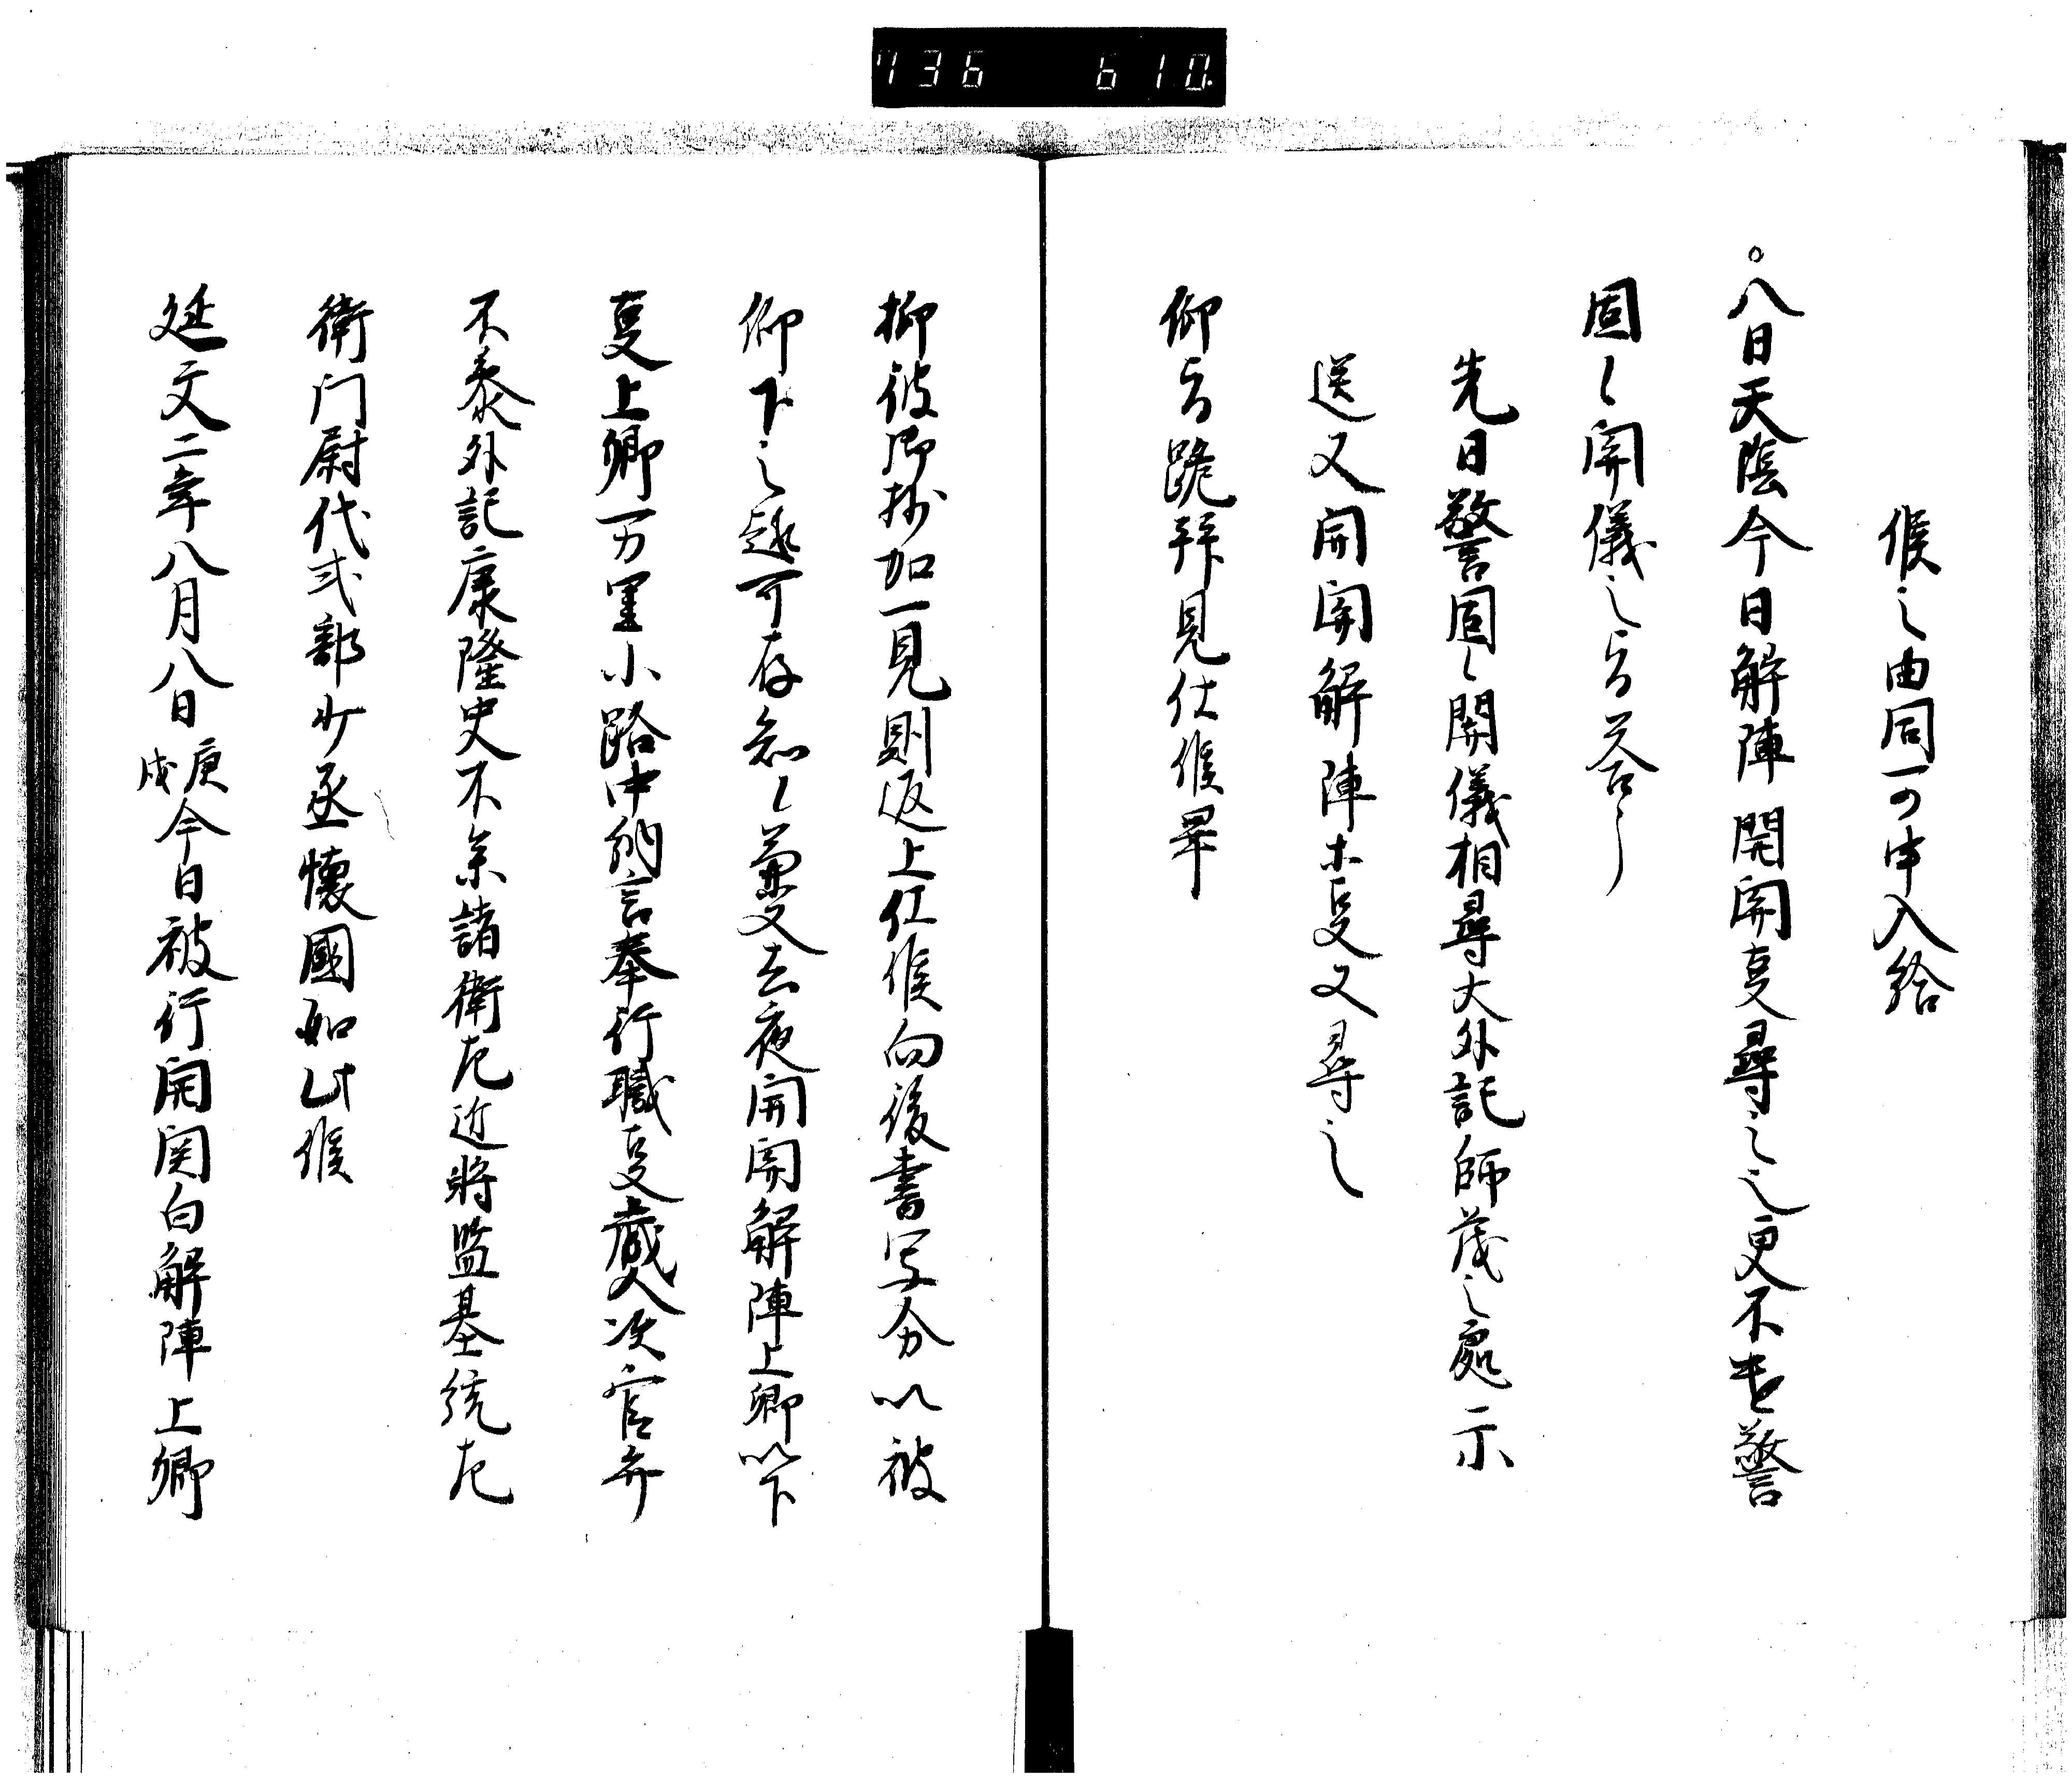 736 610
候之由同可申入給
○八日天陰今日解陣開関事尋之之更不患警
固〻関儀之旨答之
先日警固〻関儀相尋大外記師茂之処示
送又開関解陣木事又尋之
仰旨跪拝見仕候畢
抑彼御抄加一見則返上仕候向後書写分以被
仰下之趣可存知〻兼又去夜開関解陣上卿以下
事上卿万里小路中納言奉行職事蔵人次官弁
不参外記康隆史不参諸衛左近将監基統左
衛門尉代式部少丞懐国如此候
延文二年八月八日庚戌今日被行開関白解陣上卿